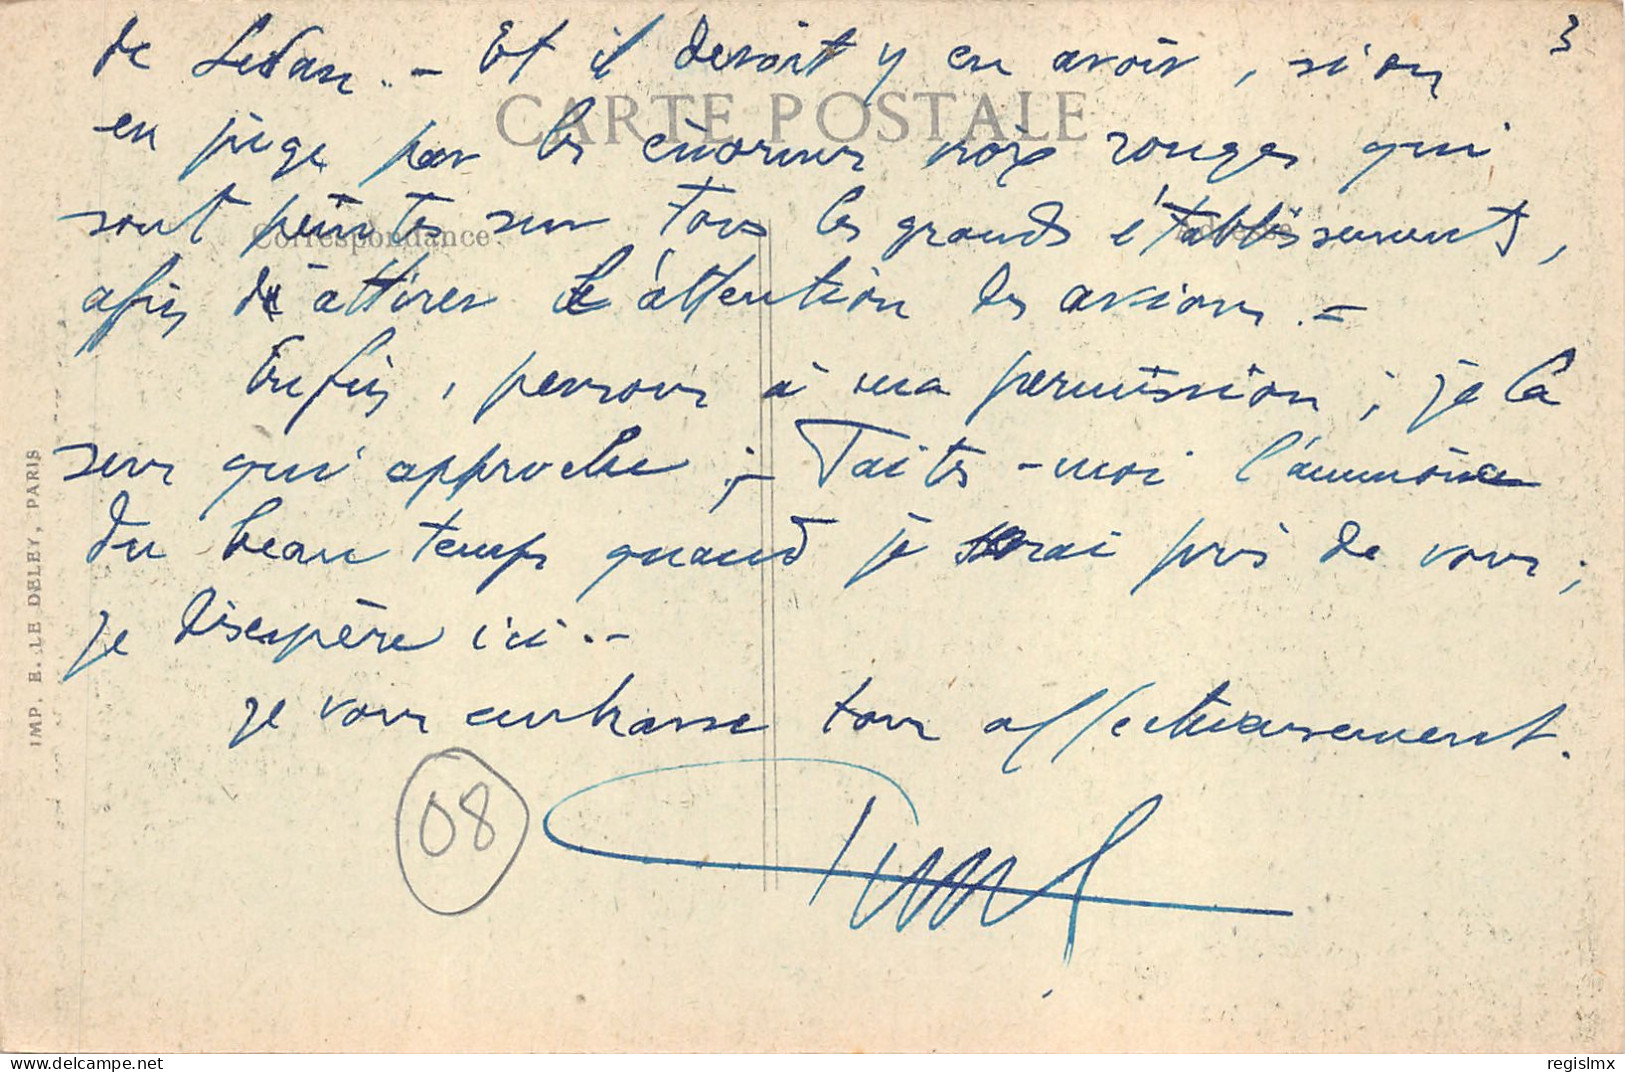 3
de Sedan. - Et il devait y en avoir, si on
CARTE POSTALE
en juge par les énormes croix rouges qui
sont peintes sur tous les grands établissements,
Correspondance
Adresse
afin d'attirer l'attention des avions. =
Enfin, pensons à ma permission ; je la
sens qui approche ;- Faites-moi l'aumône
du beau temps quand je serai près de vous ;
je désespère ici.-
je vous embrasse tous affectueusement.
08
IMP. E. LE DELEY, PARIS
delcampe.net
regislmx